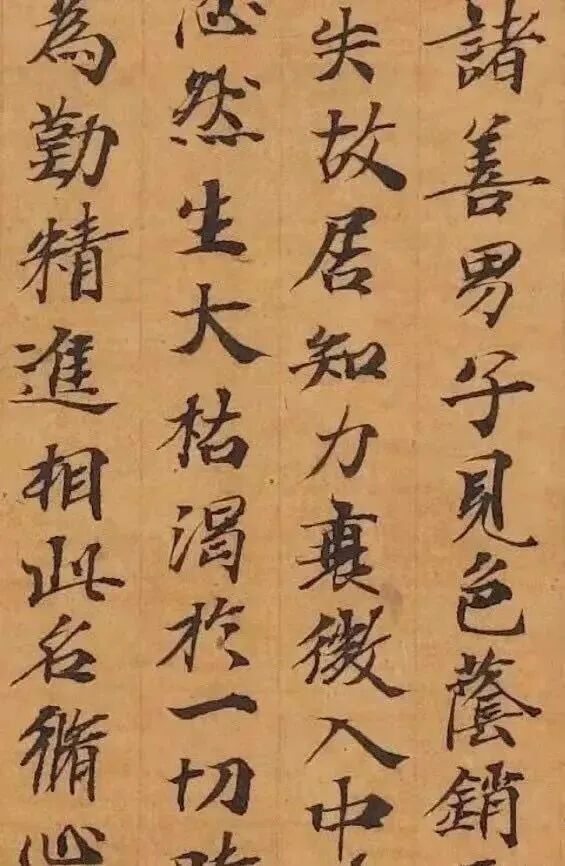 諸善男子見色蔭銷
失故居知力衰微入中
心然生大枯渴於一切時
為勤精進相此名脩心